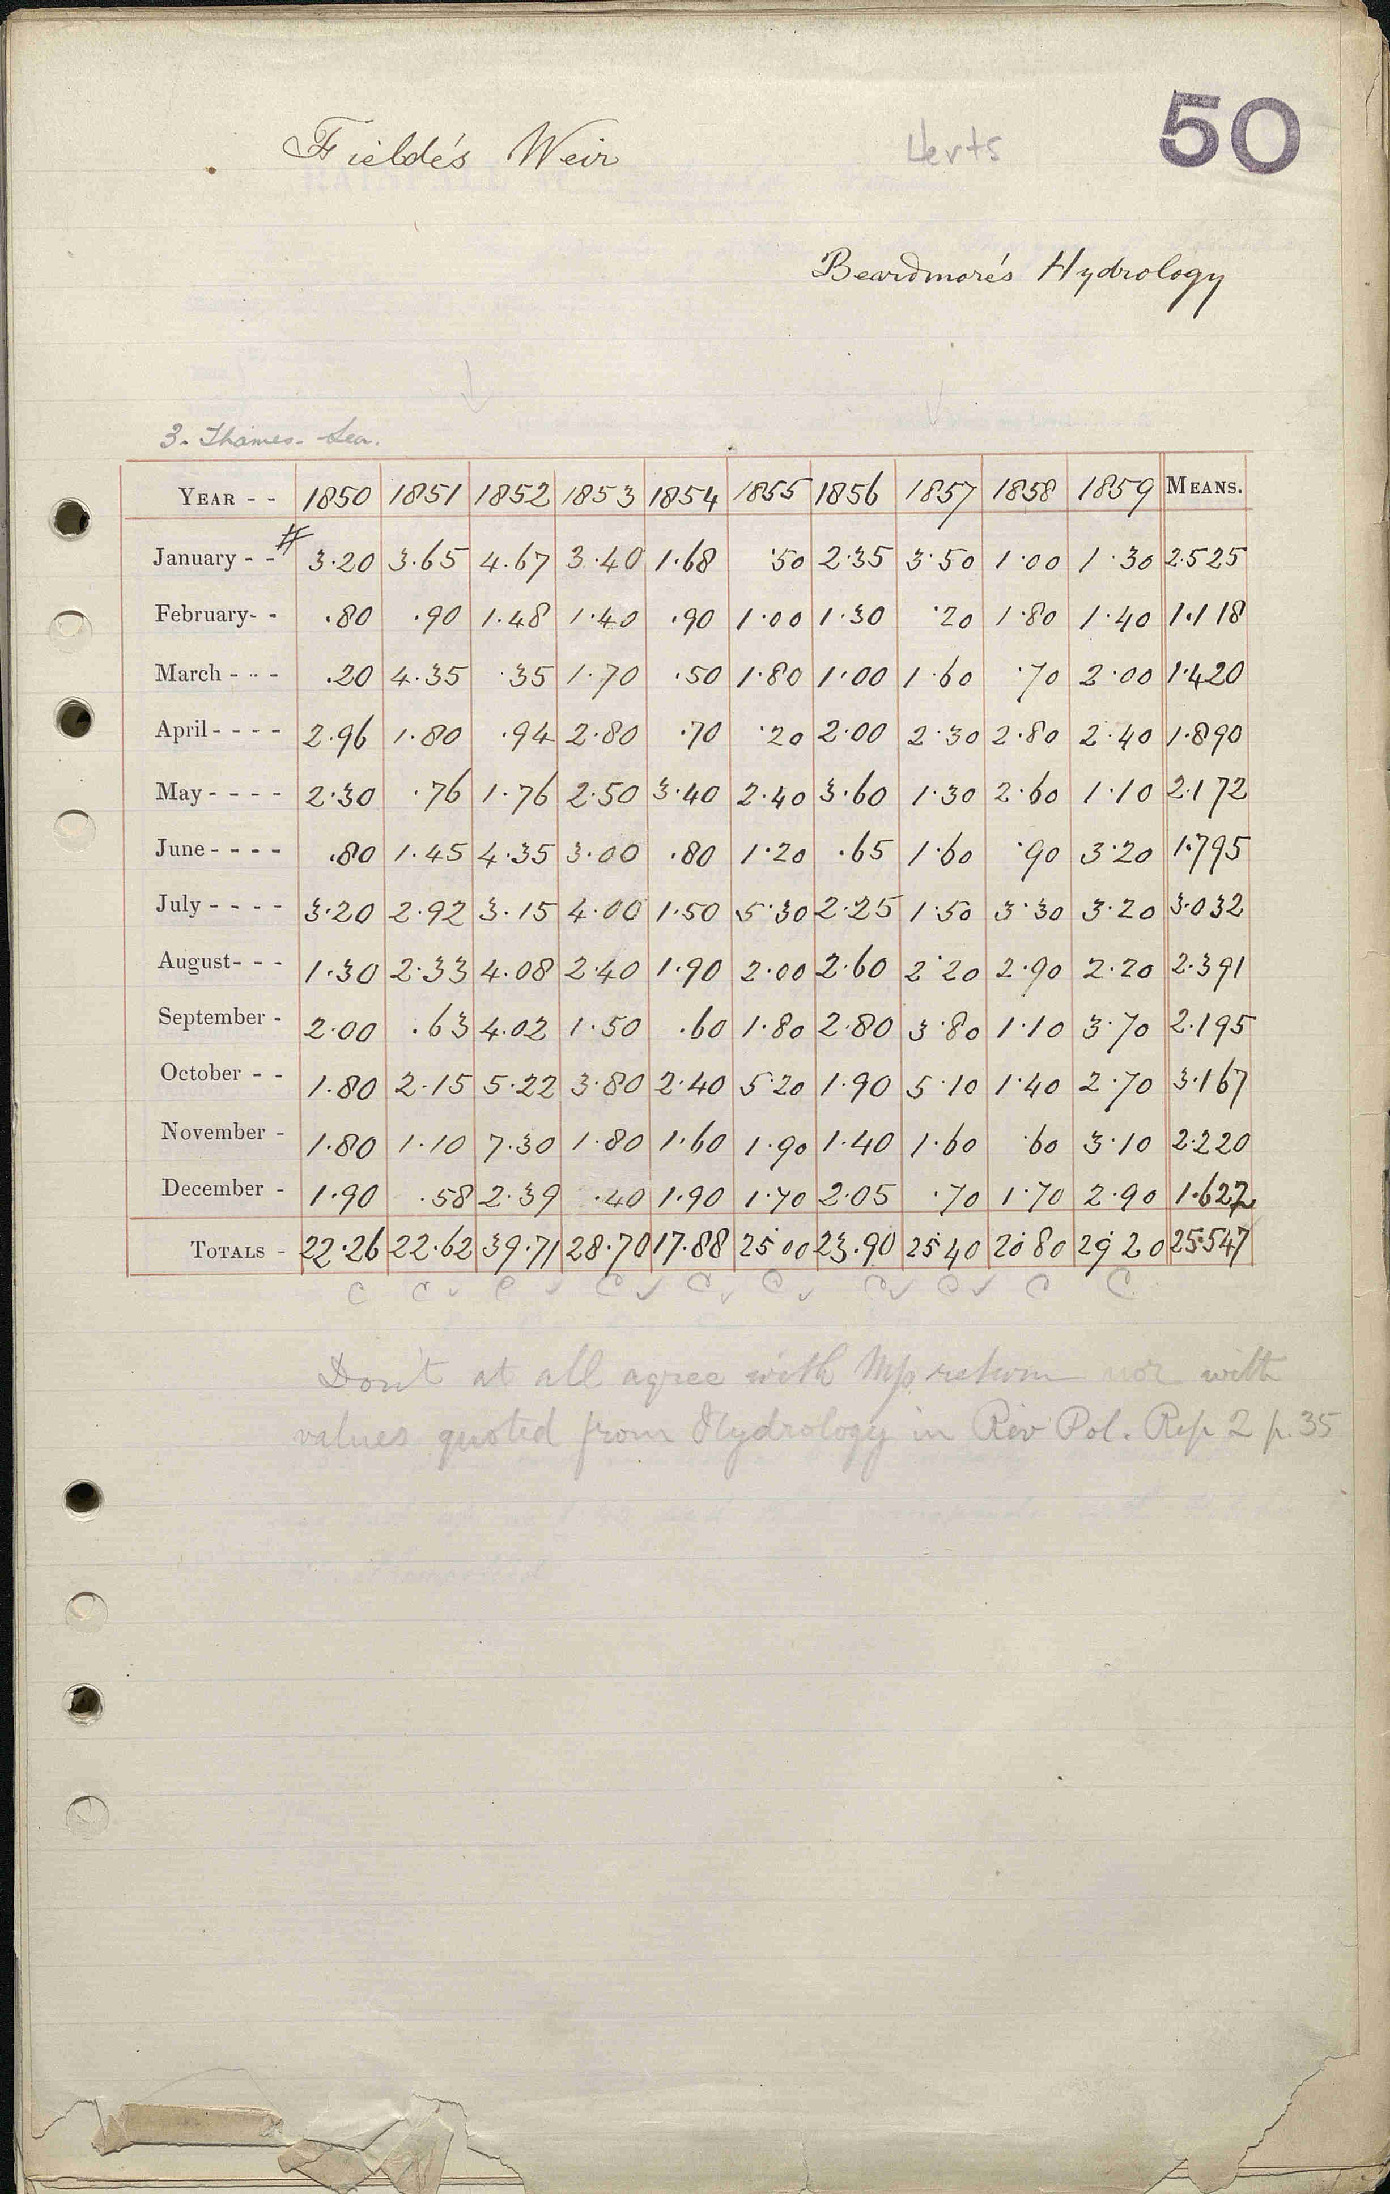 50
Fielde's Weir
Herts
Beardmore's Hydrology
3. Thames - Lea.
YEAR - - 1850 1851 1852 1853 1854 1855 1856 1857 1858 1859 MEANS.
January - - # 3.20 3.65 4.67 3.40 1.68 .50 2.35 3.50 1.00 1.30 2.525
February- - .80 .90 1.48 1.40 .90 1.00 1.30 .20 1.80 1.40 1.118
March - - - .20 4.35 .35 1.70 .50 1.80 1.00 1.60 .70 2.00 1.420
April - - - - 2.96 1.80 .94 2.80 .70 .20 2.00 2.30 2.80 2.40 1.890
May - - - - 2.30 .76 1.76 2.50 3.40 2.40 3.60 1.30 2.60 1.10 2.172
June - - - - .80 1.45 4.35 3.00 .80 1.20 .65 1.60 .90 3.20 1.795
July - - - - 3.20 2.92 3.15 4.00 1.50 5.30 2.25 1.50 3.30 3.20 3.032
August- - - 1.30 2.33 4.08 2.40 1.90 2.00 2.60 2.20 2.90 2.20 2.391
September - 2.00 .63 4.02 1.50 .60 1.80 2.80 3.80 1.10 3.70 2.195
October - - 1.80 2.15 5.22 3.80 2.40 5.20 1.90 5.10 1.40 2.70 3.167
November - 1.80 1.10 7.30 1.80 1.60 1.90 1.40 1.60 .60 3.10 2.220
December - 1.90 .58 2.39 .40 1.90 1.70 2.05 .70 1.70 2.90 1.622
TOTALS - 22.26 22.62 39.71 28.70 17.88 25.00 23.90 25.40 20.80 29.20 25.547
C C ✓ C ✓ C ✓ C ✓ C ✓ C ✓ C ✓ C C
Don't at all agree with return nor with
values quoted from Hydrology in Riv Pol. Rep 2 p. 35